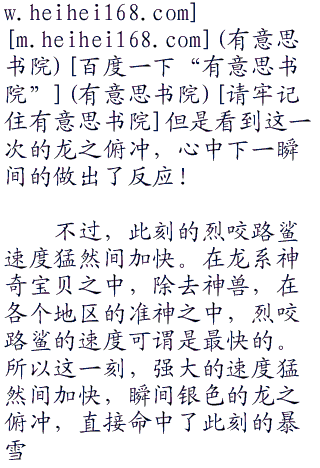 w.heihei168.com]
[m.heihei168.com](有意思
书院)[百度一下“有意思书
院”](有意思书院)[请牢记
住有意思书院]但是看到这一
次的龙之俯冲，心中下一瞬
间的做出了反应！
不过，此刻的烈咬路鲨
速度猛然间加快。在龙系神
奇宝贝之中，除去神兽，在
各个地区的准神之中，烈咬
路鲨的速度可谓是最快的。
所以这一刻，强大的速度猛
然间加快，瞬间银色的龙之
俯冲，直接命中了此刻的暴
雪